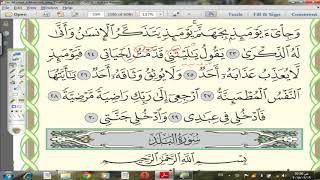 وَجِاْىٓءَ يَوْمَئِذٍۭ بِجَهَنَّمَ ۚ يَوْمَئِذٍ يَتَذَكَّرُ ٱلْإِنسَٰنُ وَأَنَّىٰ لَهُ
ٱلذِّكْرَىٰ ٢٣ يَقُولُ يَٰلَيْتَنِى قَدَّمْتُ لِحَيَاتِى ٢٤ فَيَوْمَئِذٍ
لَّا يُعَذِّبُ عَذَابَهُۥٓ أَحَدٌ ٢٥ وَلَا يُوثِقُ وَثَاقَهُۥٓ أَحَدٌ ٢٦ يَٰٓأَيَّتُهَا
ٱلنَّفْسُ ٱلْمُطْمَئِنَّةُ ٢٧ ٱرْجِعِىٓ إِلَىٰ رَبِّكِ رَاضِيَةً مَّرْضِيَّةً ٢٨
فَٱدْخُلِى فِى عِبَٰدِى ٢٩ وَٱدْخُلِى جَنَّتِى ٣٠
سُورَةُ الْبَلَدِ
بِسْمِ ٱللَّهِ ٱلرَّحْمَٰنِ ٱلرَّحِيمِ